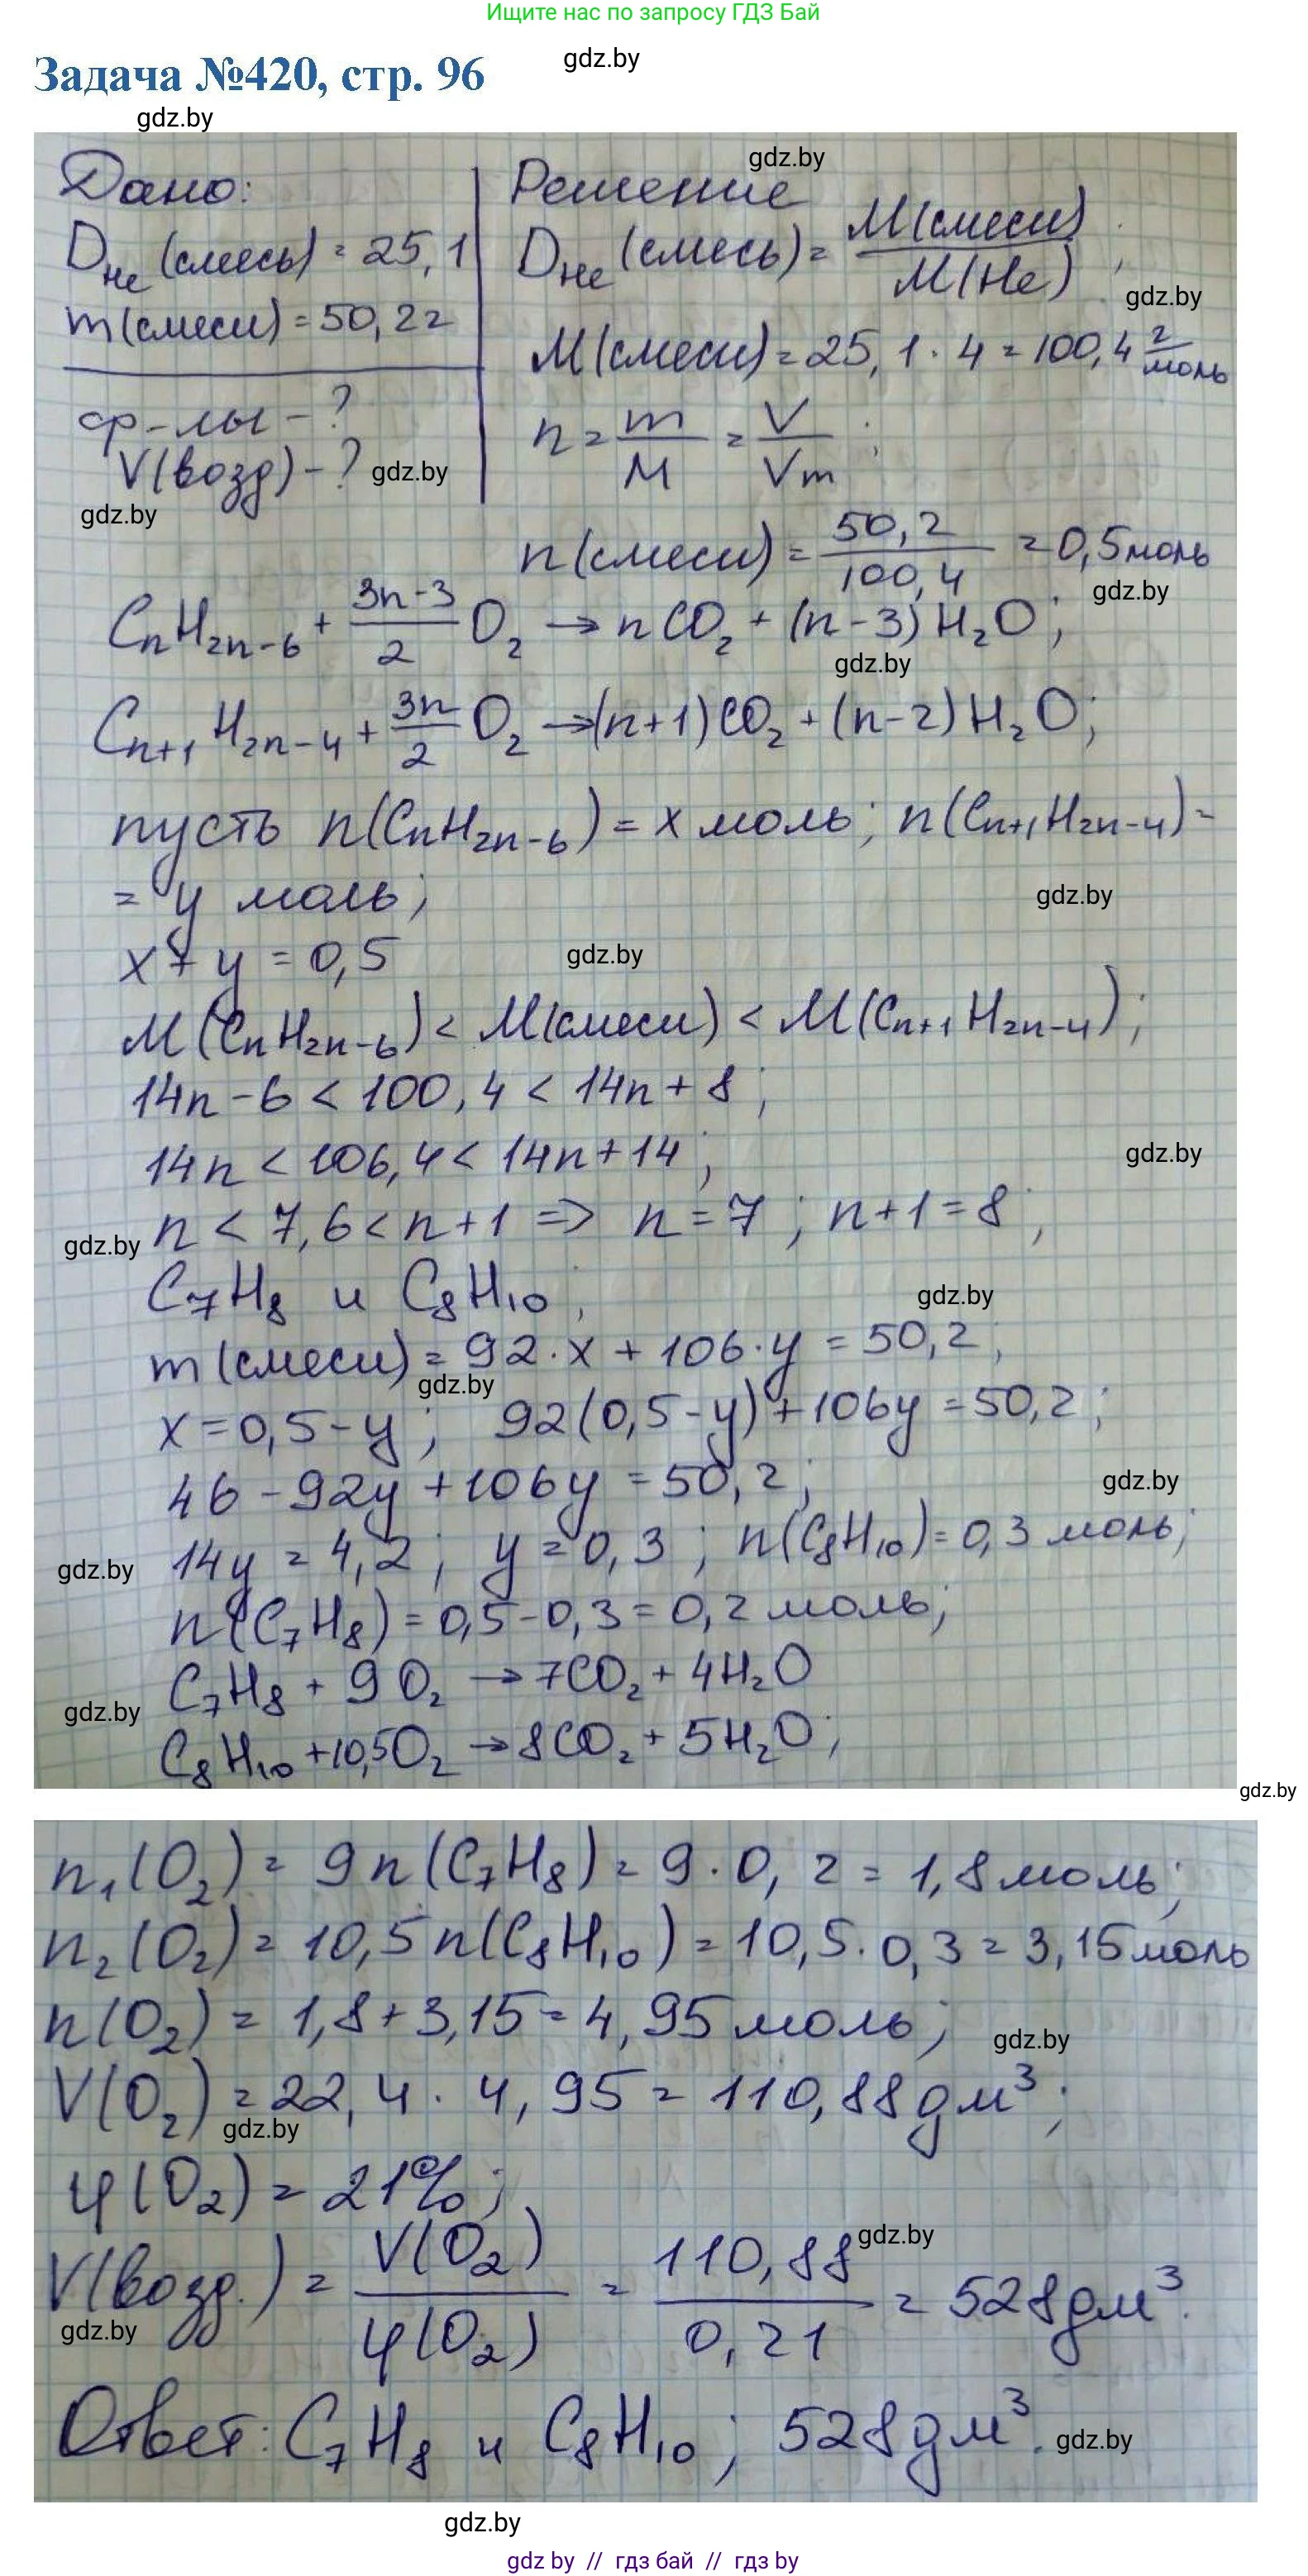 Ищите нас по запросу ГДЗ Бай
gdz.by
Задача №420, стр. 96
gdz.by
gdz.by
Дано:
D_He (смесь) = 25,1
m(смеси) = 50,2г
ф-лы - ?
V(возд) - ?
gdz.by
gdz.by
Решение
D_He (смесь) = M(смеси) / M(He) ;
gdz.by
M(смеси) = 25,1 · 4 = 100,4 г/моль
n = m/M = V/Vm ;
n(смеси) = 50,2 / 100,4 = 0,5 моль
gdz.by
CnH2n-6 + (3n-3)/2 O2 → nCO2 + (n-3)H2O;
gdz.by
Cn+1H2n-4 + 3n/2 O2 → (n+1)CO2 + (n-2)H2O;
пусть n(CnH2n-6) = x моль; n(Cn+1H2n-4) =
= y моль;
gdz.by
x + y = 0,5
gdz.by
M(CnH2n-6) < M(смеси) < M(Cn+1H2n-4);
14n - 6 < 100,4 < 14n + 8;
14n < 106,4 < 14n + 14;
gdz.by
gdz.by
n < 7,6 < n+1 => n = 7; n+1 = 8;
C7H8 и C8H10;
gdz.by
m(смеси) = 92·x + 106·y = 50,2;
gdz.by
x = 0,5 - y; 92(0,5-y) + 106y = 50,2;
46 - 92y + 106y = 50,2;
gdz.by
14y = 4,2; y = 0,3; n(C8H10) = 0,3 моль;
gdz.by
n(C7H8) = 0,5 - 0,3 = 0,2 моль;
C7H8 + 9O2 → 7CO2 + 4H2O
gdz.by
C8H10 + 10,5O2 → 8CO2 + 5H2O;
gdz.by
n1(O2) = 9n(C7H8) = 9·0,2 = 1,8 моль;
n2(O2) = 10,5n(C8H10) = 10,5·0,3 = 3,15 моль
n(O2) = 1,8 + 3,15 = 4,95 моль;
gdz.by
V(O2) = 22,4 · 4,95 = 110,88 дм³;
gdz.by
φ(O2) = 21%;
V(возд.) = V(O2) / φ(O2) = 110,88 / 0,21 = 528 дм³.
gdz.by
gdz.by
Ответ: C7H8 и C8H10; 528 дм³.
gdz.by
gdz.by
gdz by // гдз бай // гдз by